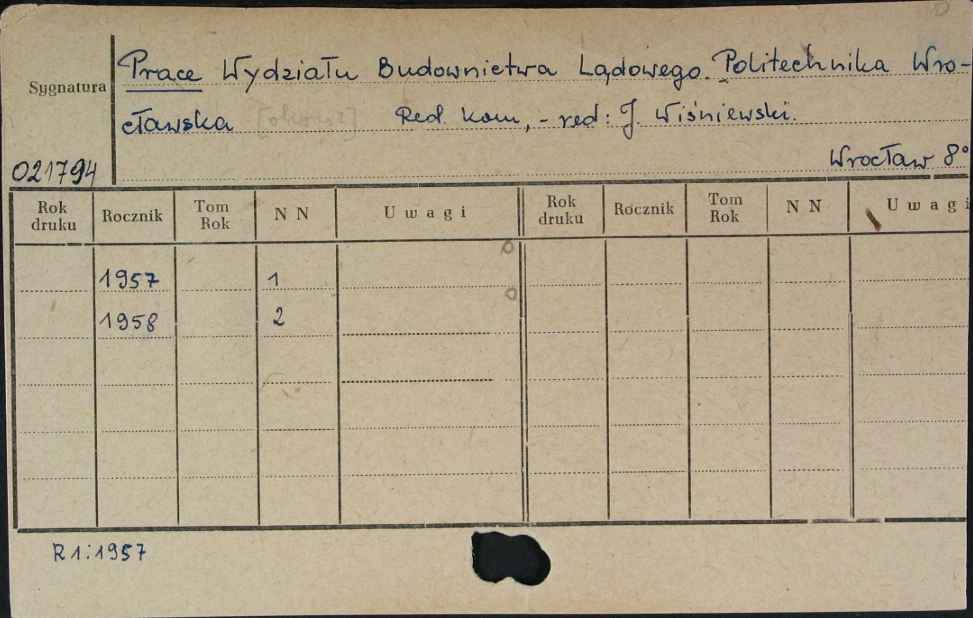 Prace Wydziału Budownictwa Lądowego. Politechnika Wro-
Sygnatura
cławska Red. kom., - red: J. Wiśniewski.
021794 Wrocław 8°
Rok druku Rocznik Tom Rok N N Uwagi Rok druku Rocznik Tom Rok N N Uwagi
1957 1
1958 2
R 1:1957